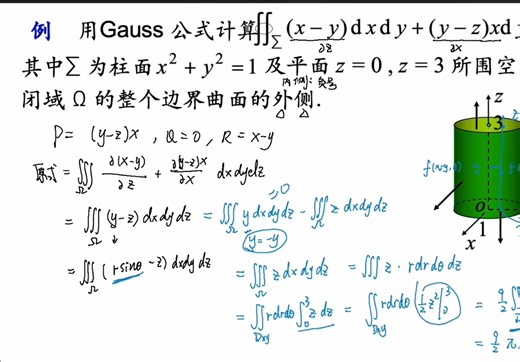 例 用Gauss 公式计算∬_Σ (x−y)dxdy+(y−z)xd
∂z ∂x
其中Σ为柱面 x²+y²=1 及平面 z=0, z=3 所围空
内侧: 负号
闭域 Ω 的整个边界曲面的外侧.
P= (y-z)x , Q=0, R=x-y
原式 = ∭_Ω ∂(x-y)/∂z + ∂(y-z)x/∂x dxdydz
= ∭_Ω (y-z) dxdydz = ∭_Ω y dxdydz - ∭_Ω z dxdydz
=0
y=-y
= ∭_Ω (r sinθ - z) dxdydz
= ∭_Ω z dxdydz = ∭ z · r dr dθ dz
= ∬_Dxy r dr dθ ∫_0^3 z dz = ∬_Dxy r dr dθ (½z²|_0^3) = 9/2 ∬
= 9/2 π.
z
3
o
x
1